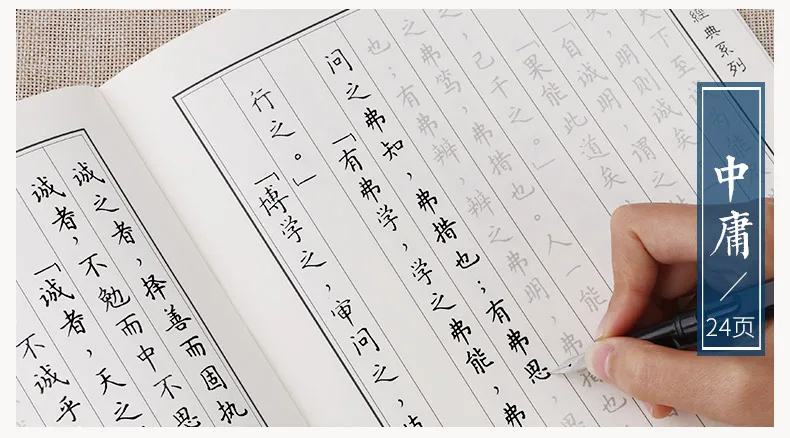 不诚乎
「诚者,天之
诚者,不勉而中不思
诚之者,择善而固执
「博学之,审问之,
行之。」「有弗学,学之弗能,弗
问之弗知,弗措也;有弗思
也;有弗辨,辨之弗明,弗措
之弗笃,弗措也。人一能
己千之。」
「果能此道矣
「自诚明,谓之
矣,明则诚矣
天下至诚为能
經典系列
中庸
24页